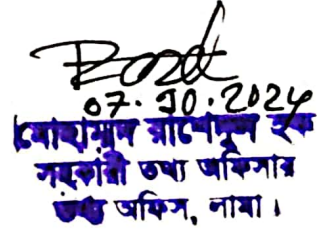 07.10.2024
মোহাম্মদ রাশেদুল হক
সহকারী তথ্য অফিসার
তথ্য অফিস, লামা।